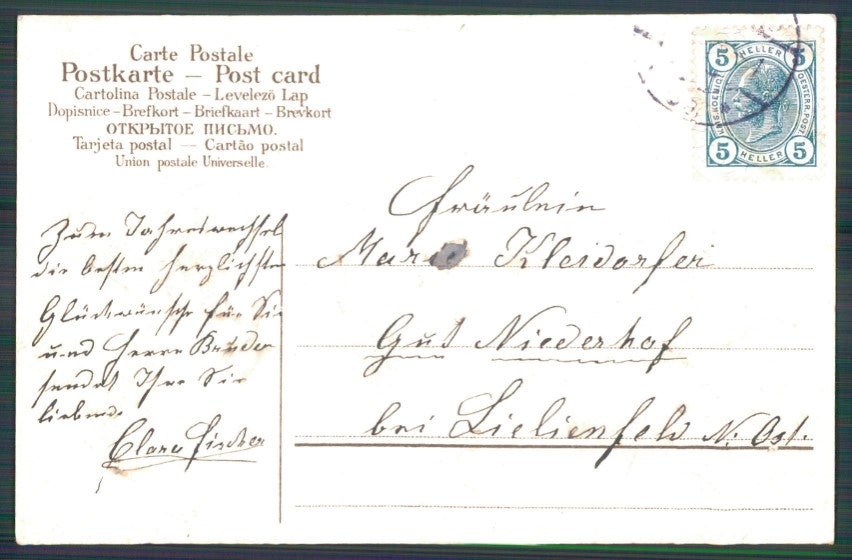 Carte Postale
Postkarte — Post card
Cartolina Postale – Levelező Lap
Dopisnice – Brefkort – Briefkaart – Brevkort
ОТКРЫТОЕ ПИСЬМО.
Tarjeta postal — Cartão postal
Union postale Universelle.
5 HELLER 5
KAIS. KOENIGL. OESTERR. POST
5 HELLER 5
Zum Jahreswechsel
die besten herzlichsten
Glückwünsche für Sie
und Herrn Bruder
sendet Ihre Sie
liebende
Clara Fischer
Fräulein
Marie Kleidorfer
Gut Niederhof
bei Lielienfeld N. Öst.